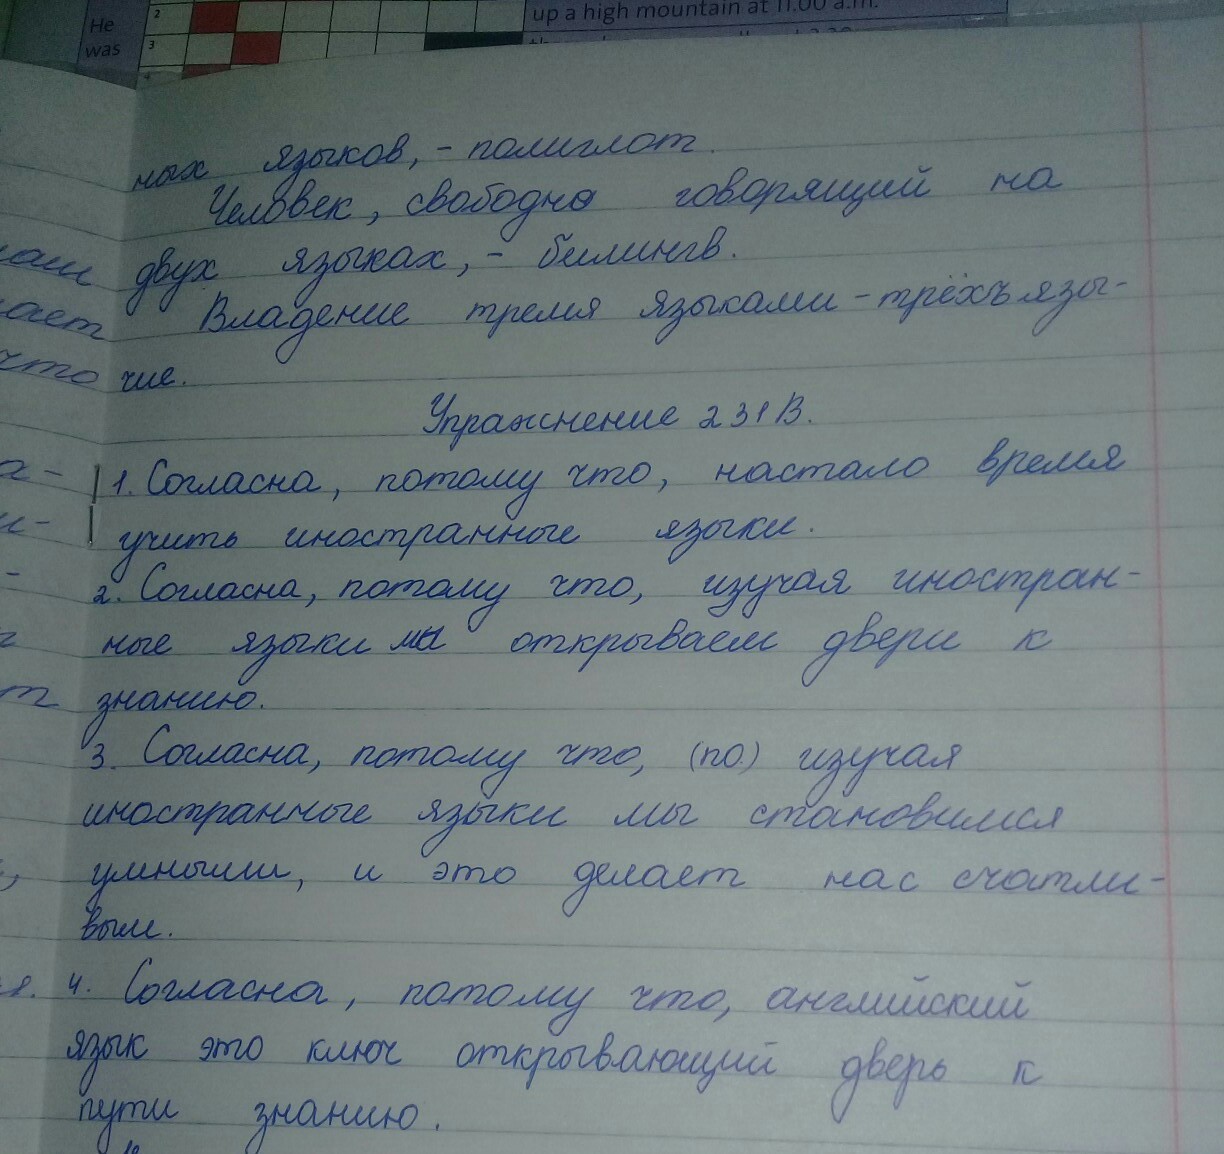 He
was
2
3
up a high mountain at 11.00 a.m.
ных языков, - полиглот.
Человек, свободно говорящий на
двух языках, - билингв.
Владение тремя языками - трёхъязы-
чие.
Упражнение 231В.
1. Согласна, потому что, настало время
учить иностранные языки.
2. Согласна, потому что, изучая иностран-
ные языки мы открываем двери к
знанию.
3. Согласна, потому что, (по) изучая
иностранные языки мы становимся
умными, и это делает нас счатли-
выми.
4. Согласна, потому что, английский
язык это ключ открывающий дверь к
пути знанию.
ает
что
а-
и-
-
т
я.